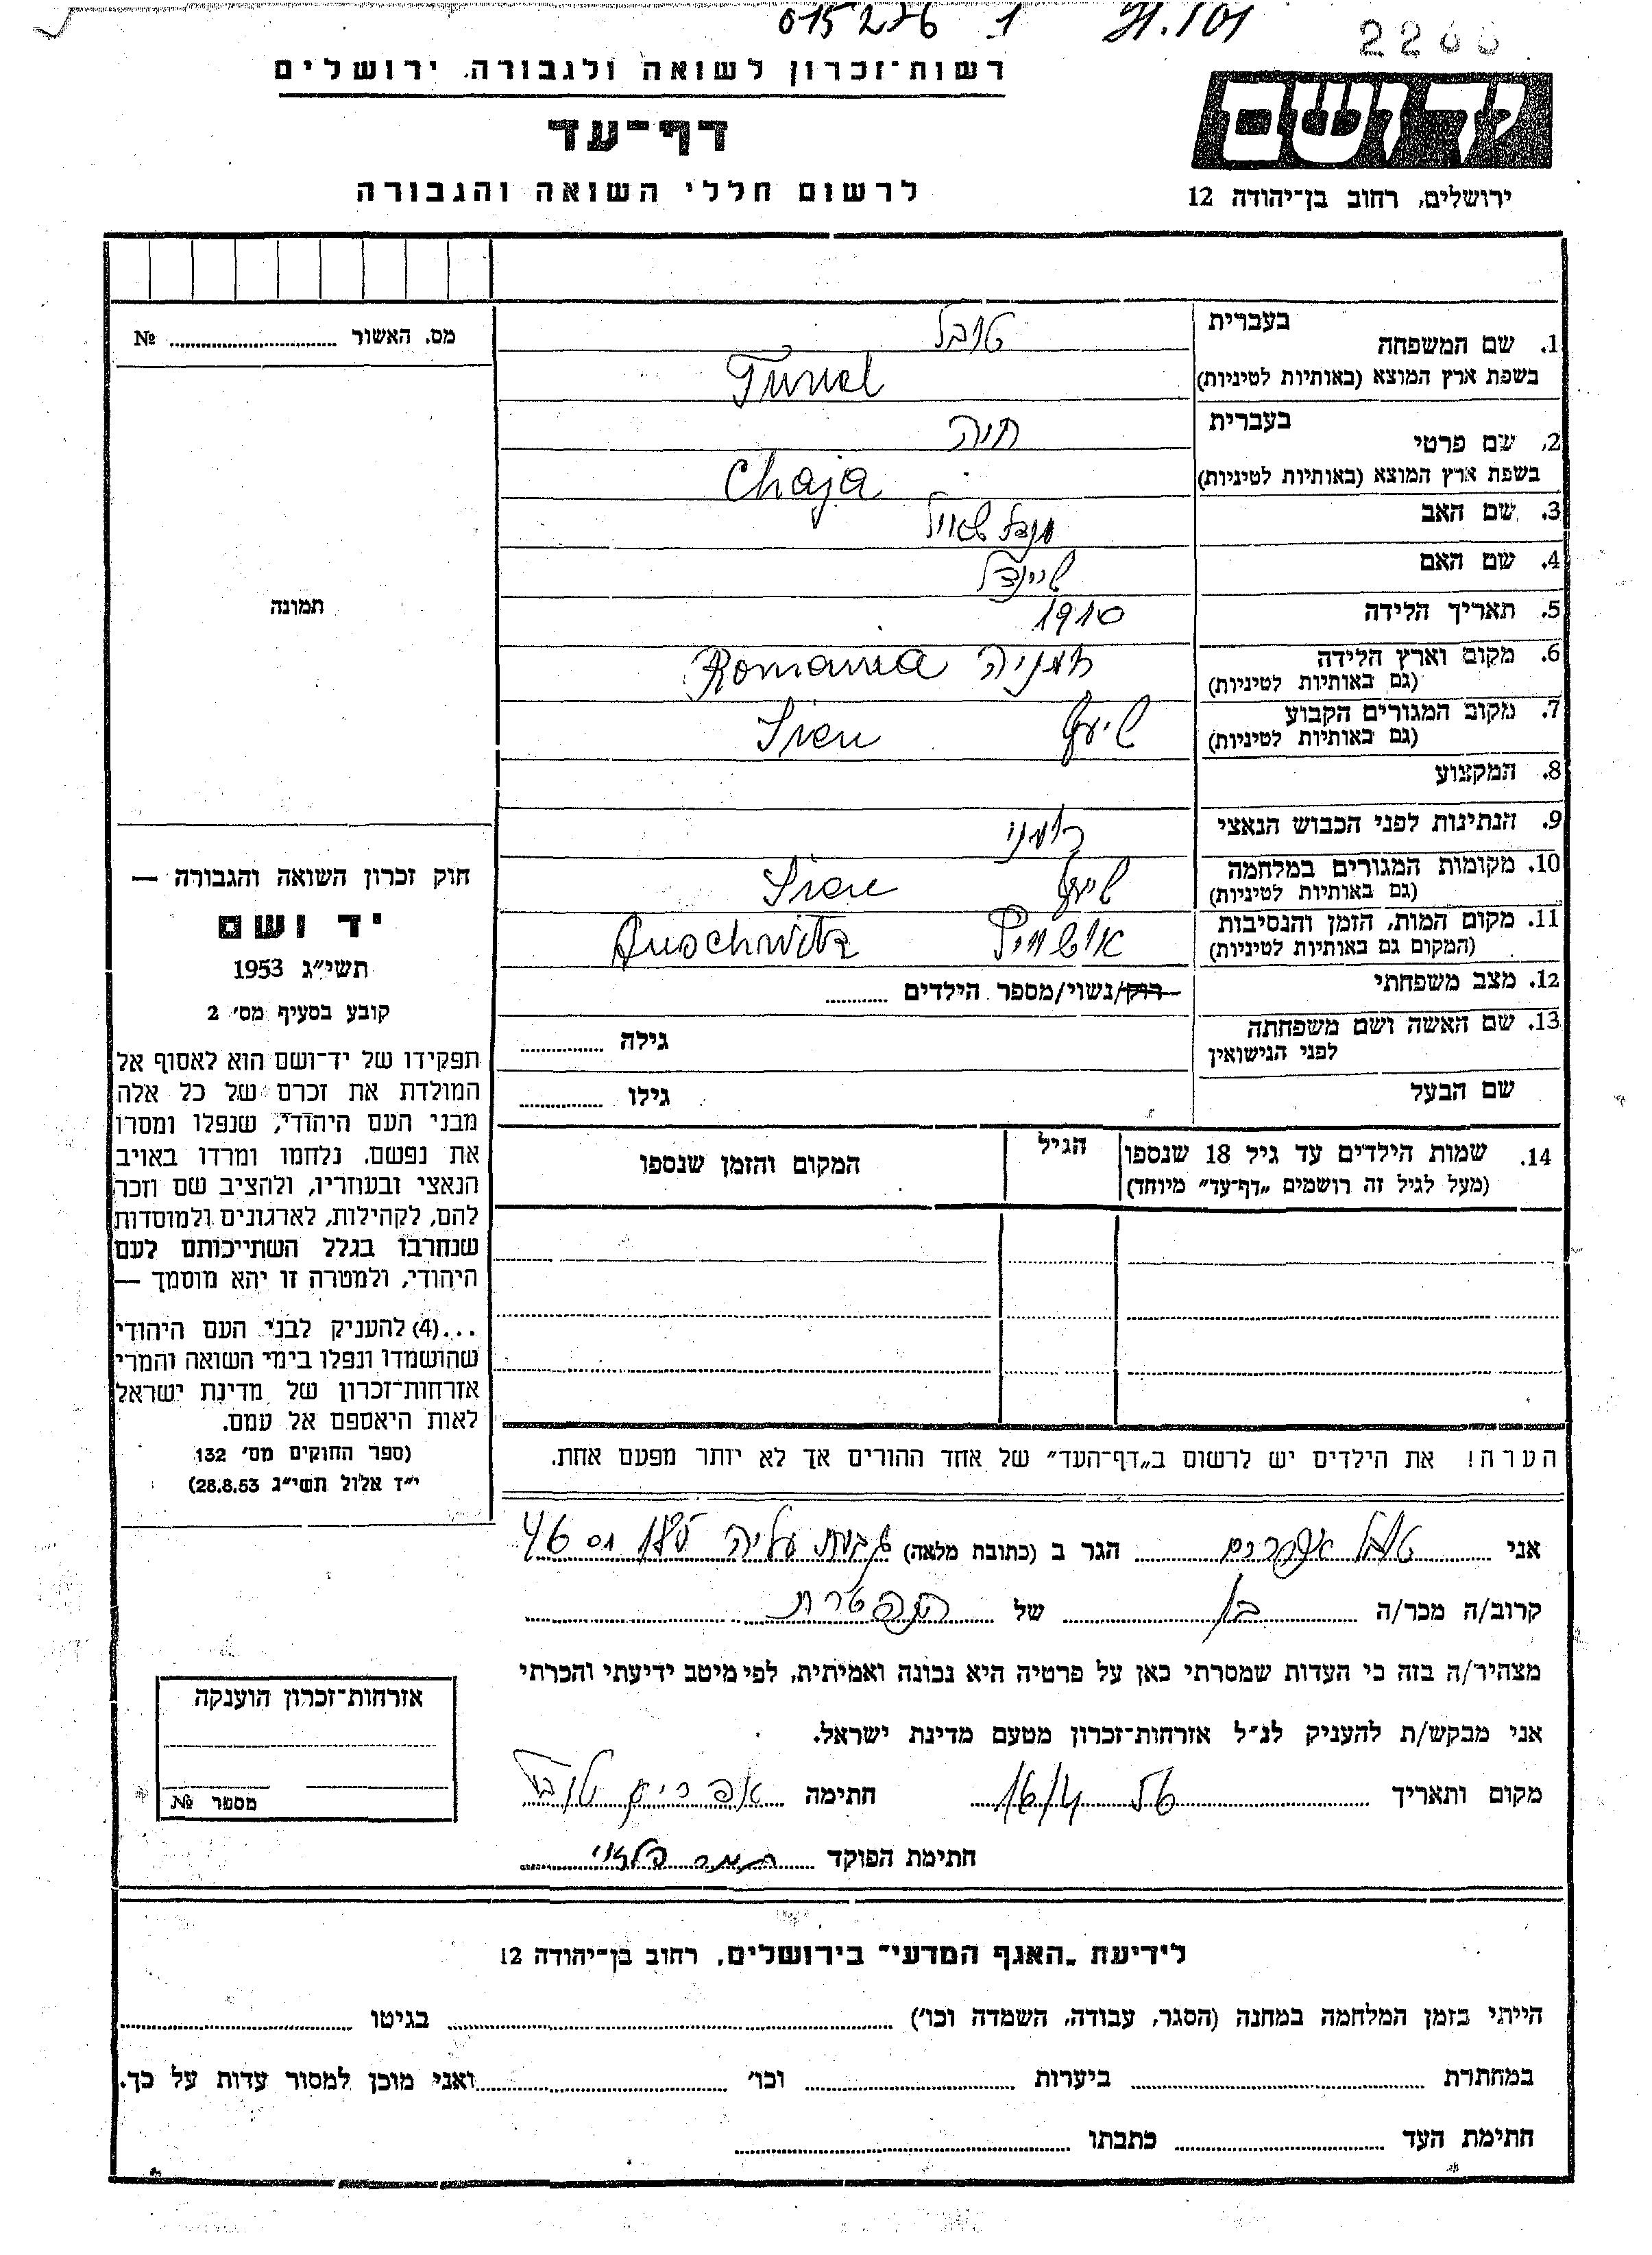 015276 1
2200
רשות־זכרון לשואה ולגבורה. ירושלים
דף־עד
לרשום חללי השואה והגבורה
ידושם
ירושלים, רחוב בן־יהודה 12
מס. האשור №
תמונה
בעברית
1. שם המשפחה
טובל
בשפת ארץ המוצא (באותיות לטיניות)
בעברית
2. שם פרטי
חיה
בשפת ארץ המוצא (באותיות לטיניות) Chaja
3. שם האב
4. שם האם שיינדל
5. תאריך הלידה 1910
6. מקום וארץ הלידה Romania
(גם באותיות לטיניות)
7. מקום המגורים הקבוע
(גם באותיות לטיניות)
8. המקצוע
9. הנתינות לפני הכבוש הנאצי רומני
10. מקומות המגורים במלחמה
(גם באותיות לטיניות)
11. מקום המות, הזמן והנסיבות Auschwitz
(המקום גם באותיות לטיניות)
12. מצב משפחתי רוק/נשוי/מספר הילדים
13. שם האשה ושם משפחתה
לפני הנישואין
גילה
שם הבעל גילו
14. שמות הילדים עד גיל 18 שנספו הגיל המקום והזמן שנספו
(מעל לגיל זה רושמים "דף־עד" מיוחד)
הערה! את הילדים יש לרשום ב"דף־העד" של אחד ההורים אך לא יותר מפעם אחת.
חוק זכרון השואה והגבורה —
יד ושם
תשי"ג 1953
קובע בסעיף מס' 2
תפקידו של יד־ושם הוא לאסוף אל
המולדת את זכרם של כל אלה
מבני העם היהודי, שנפלו ומסרו
את נפשם, נלחמו ומרדו באויב
הנאצי ובעוזריו, ולהציב שם וזכר
להם, לקהילות, לארגונים ולמוסדות
שנחרבו בגלל השתייכותם לעם
היהודי, ולמטרה זו יהא מוסמך —
...(4) להעניק לבני העם היהודי
שהושמדו ונפלו בימי השואה והמרי
אזרחות־זכרון של מדינת ישראל
לאות היאספם אל עמם.
(ספר החוקים מס' 132
י"ז אלול תשי"ג 28.8.53)
אני טובל אפרים הגר ב (כתובת מלאה) גבעת עליה
קרוב/ה מכר/ה בן של הנפטרת
מצהיר/ה בזה כי העדות שמסרתי כאן על פרטיה היא נכונה ואמיתית, לפי מיטב ידיעתי והכרתי
אני מבקש/ת להעניק לנ"ל אזרחות־זכרון מטעם מדינת ישראל.
מקום ותאריך חתימה אפרים טובל
חתימת הפוקד
אזרחות־זכרון הוענקה
מספר №
לידיעת "האגף המדעי" בירושלים, רחוב בן־יהודה 12
הייתי בזמן המלחמה במחנה (הסגר, עבודה, השמדה וכו') בגיטו
במחתרת ביערות וכו' ואני מוכן למסור עדות על כך.
חתימת העד כתבתו